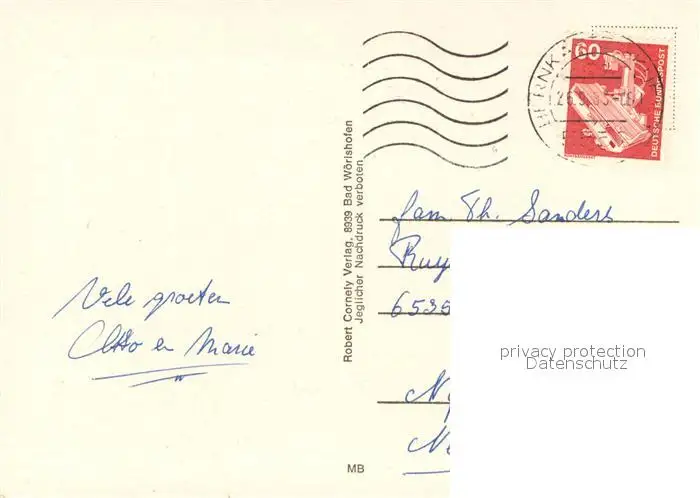 Vele groeten
Otto en Marie
Robert Cornely Verlag, 8939 Bad Wörishofen
Jeglicher Nachdruck verboten
MB
60
DEUTSCHE BUNDESPOST
fam. Th. Sanders
Ruy
6535
privacy protection
Datenschutz